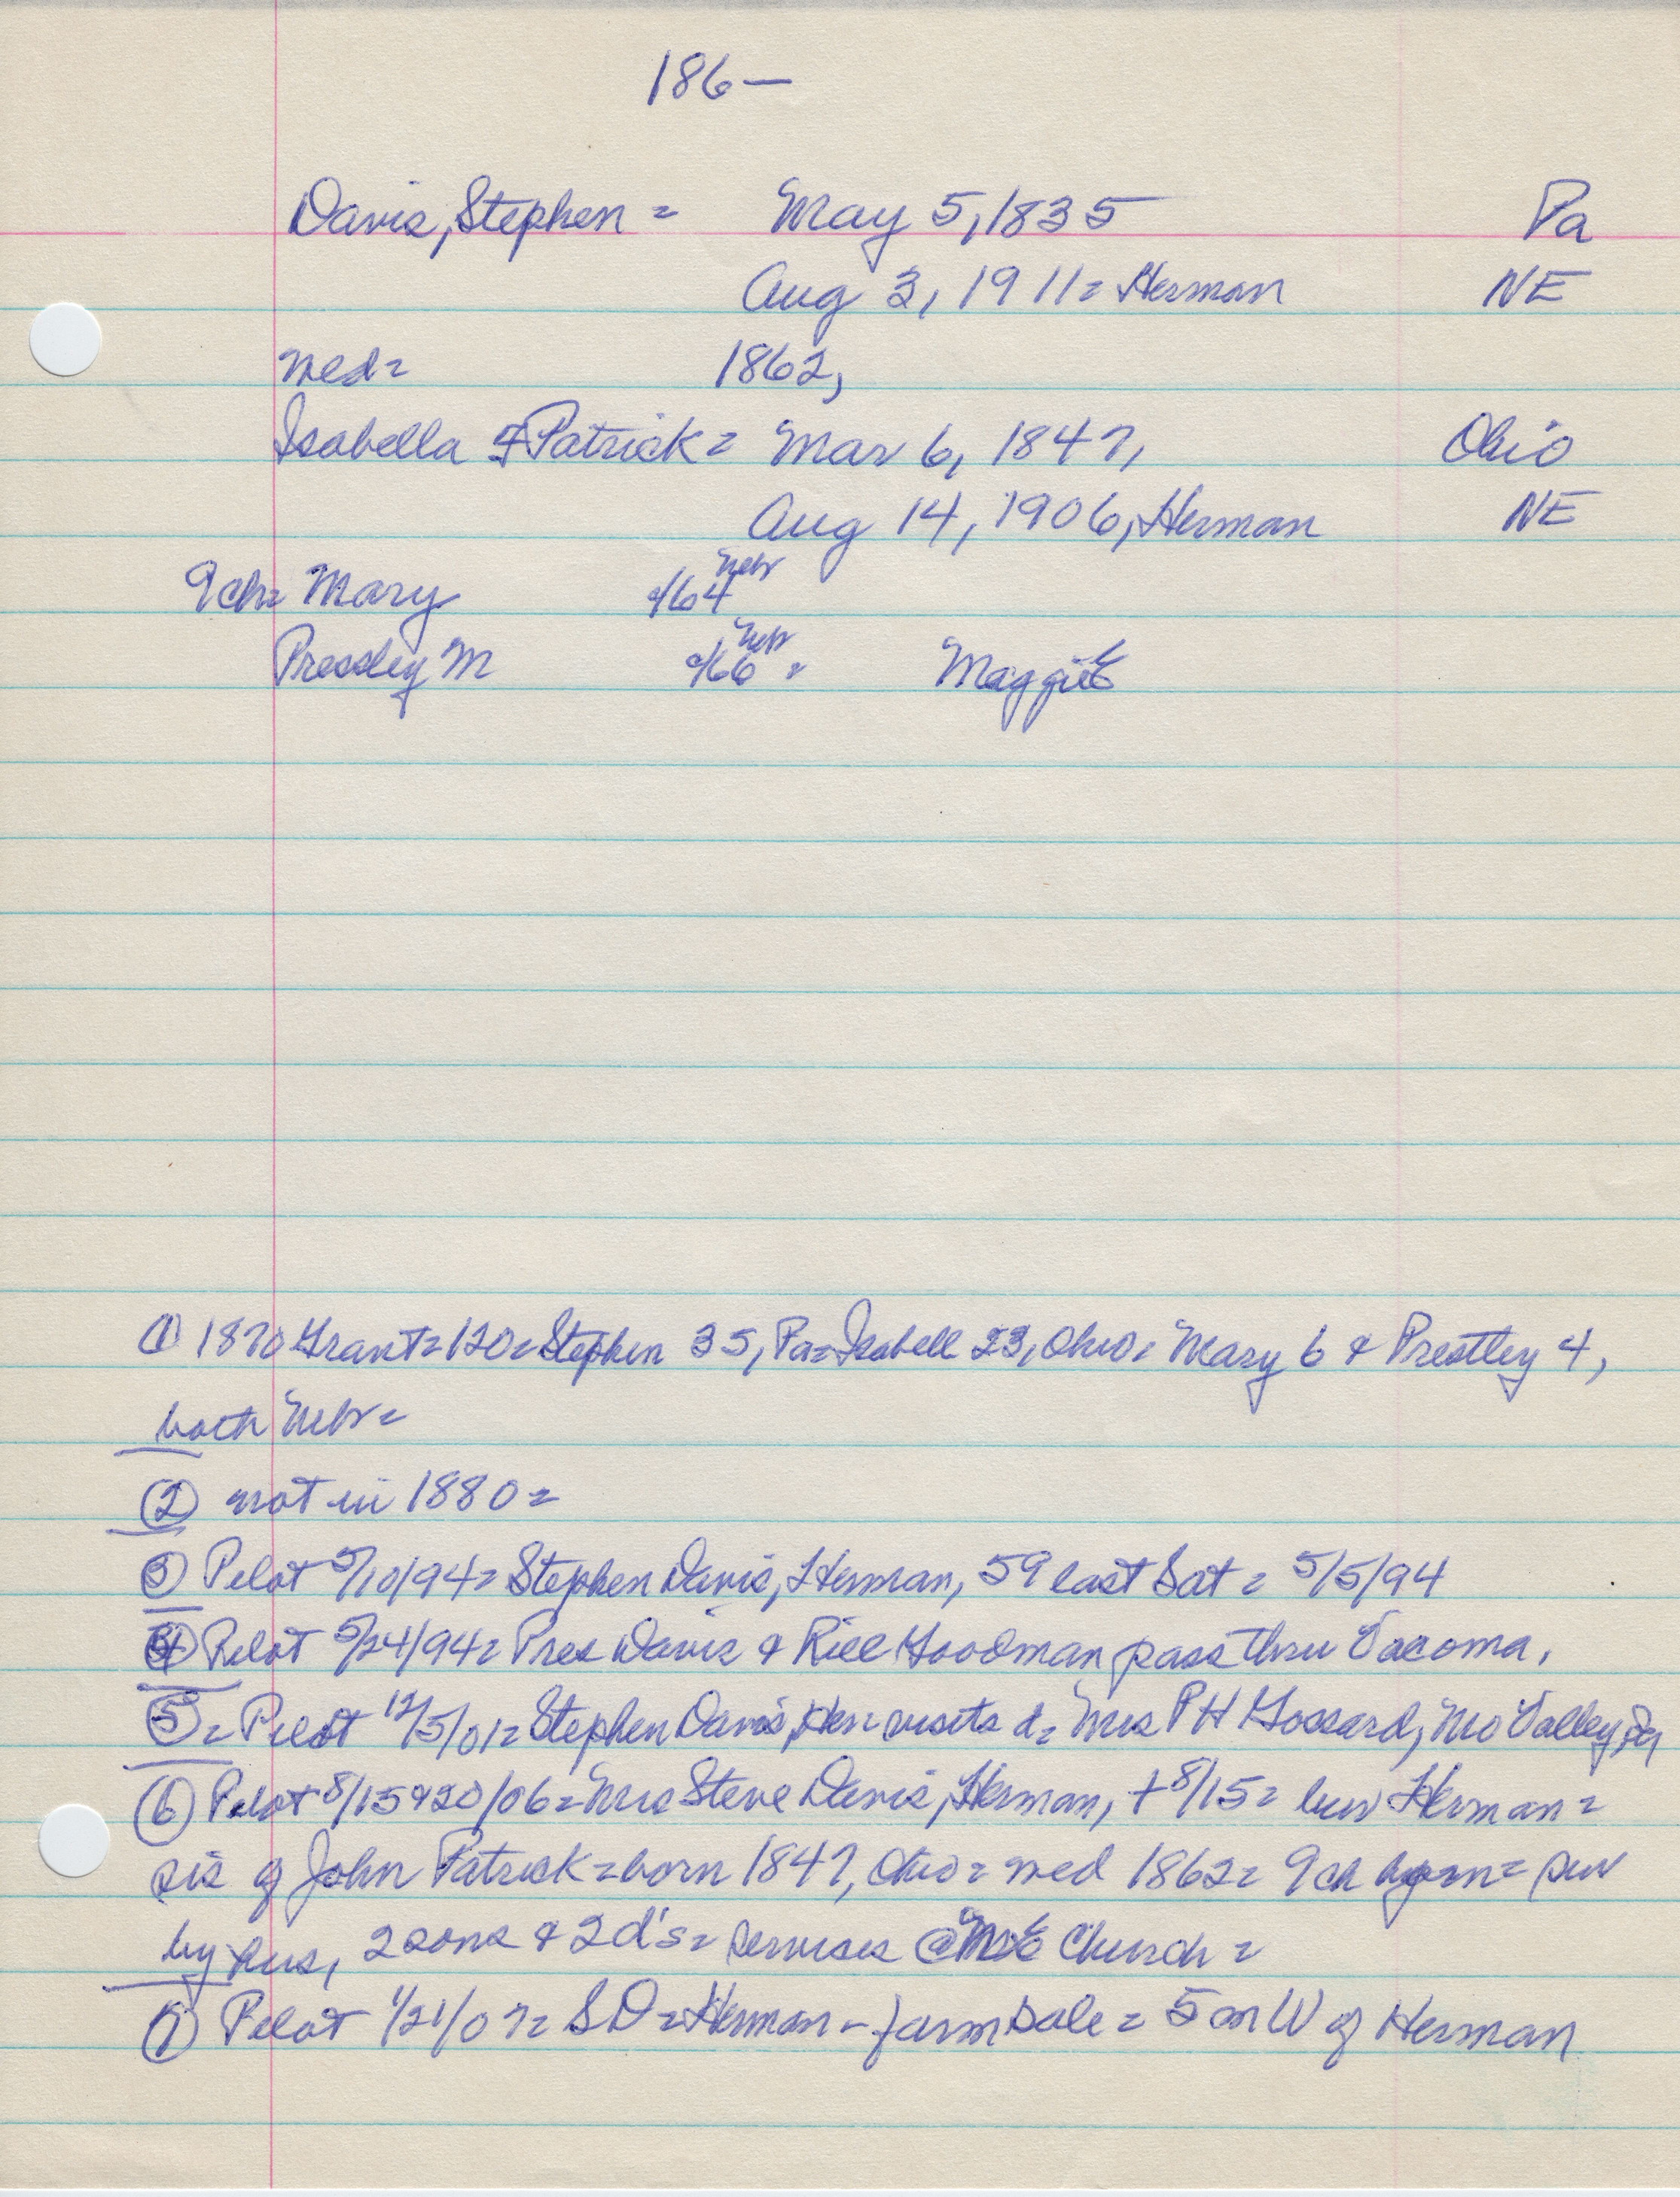 186—
Davis, Stephen = May 5, 1835 Pa
Aug 3, 1911 = Herman NE
med = 1862,
Isabella Patrick = Mar 6, 1847, Ohio
Aug 14, 1906, Herman NE
9 ch = Mary c/64 Nebr
Pressley M c/66 Nebr = Maggie E
① 1870 Grant = 120 = Stephen 35, Pa = Isabell 23, Ohio = Mary 6 & Prestley 4,
both Nebr =
② not in 1880 =
③ Pilot 5/10/94 = Stephen Davis, Herman, 59 last Sat = 5/5/94
④ Pilot 5/24/94 = Pres Davis & Rill Goodman pass thru Tacoma.
⑤ = Pilot 12/5/01 = Stephen Davis, Her = visits d = Mrs P H Gossard, Mo Valley,
⑥ Pilot 8/15 & 20/06 = Mrs Steve Davis, Herman, + 8/15 = bur Herman =
sis of John Patrick = born 1847, Ohio = med 1862 = 9 ch born = sur
by hus, 2 sons & 2 d's = services @ ME Church =
⑦ Pilot 1/21/07 = S D = Herman - farm sale = 5 m W of Herman